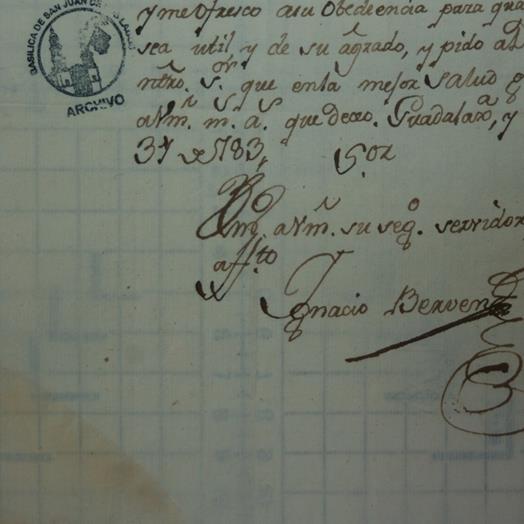 BASILICA DE SAN JUAN DE LOS LAGOS
ARCHIVO
y me ofresco a su Obediencia para qua
sea util, y de su agrado, y pido a
ntro. S.or que en la mejor Salud g
a Vm. m.s a.s que deceo. Guadalax.a, y
31 de 783,, S.or
B. m. a Vm. su seg.o servidor
aff.to
Ignacio Berven